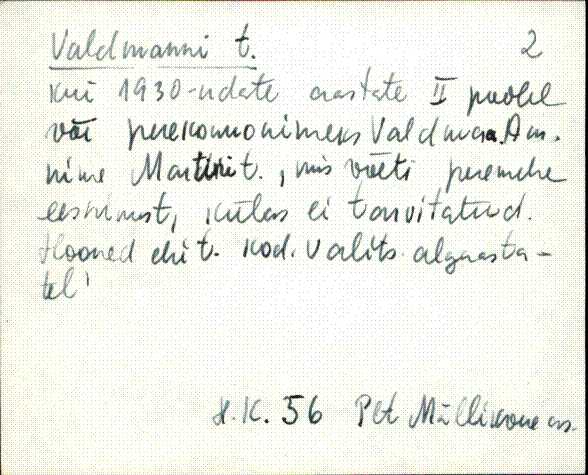 Valdmanni t. 2
kui 1930-ndate aastate II poolel
võt. perekonnanimeks Valdmaa. Am.
nime Martini t., mis võeti peremehe
eesnimest, külas ei tarvitatud.
Hooned ehit. kod. valits. algaasta-
tel
H.K. 56 Plt Müllikone as.